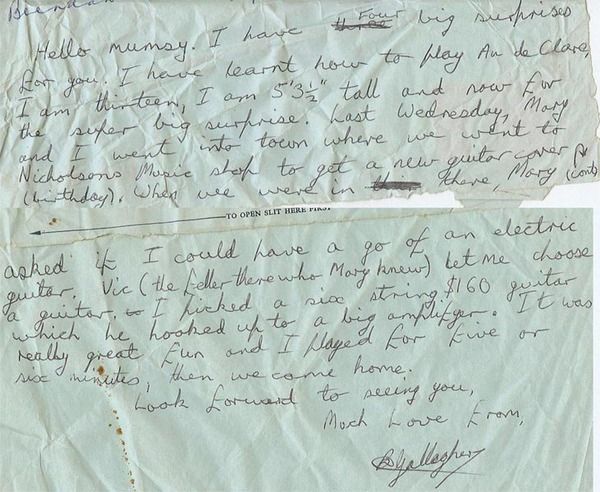 Brendan
Hello mumsy. I have three Four big surprises
for you. I have learnt how to play Au de Clare,
I am thirteen, I am 5"3½" tall and now for
the super big surprise. Last Wednesday, Mary
and I went into town where we went to
Nicholsons Music shop to get a new guitar cover
(birthday). When we were in there, Mary (cont)
TO OPEN SLIT HERE FIRST
asked if I could have a go of an electric
guitar. Vic (the feller there who Mary knew) let me choose
a guitar. I picked a six string $160 guitar
which he hooked up to a big amplifyer. It was
really great fun and I played for five or
six minutes, then we came home.
Look forward to seeing you,
Much Love From,
BGallagher